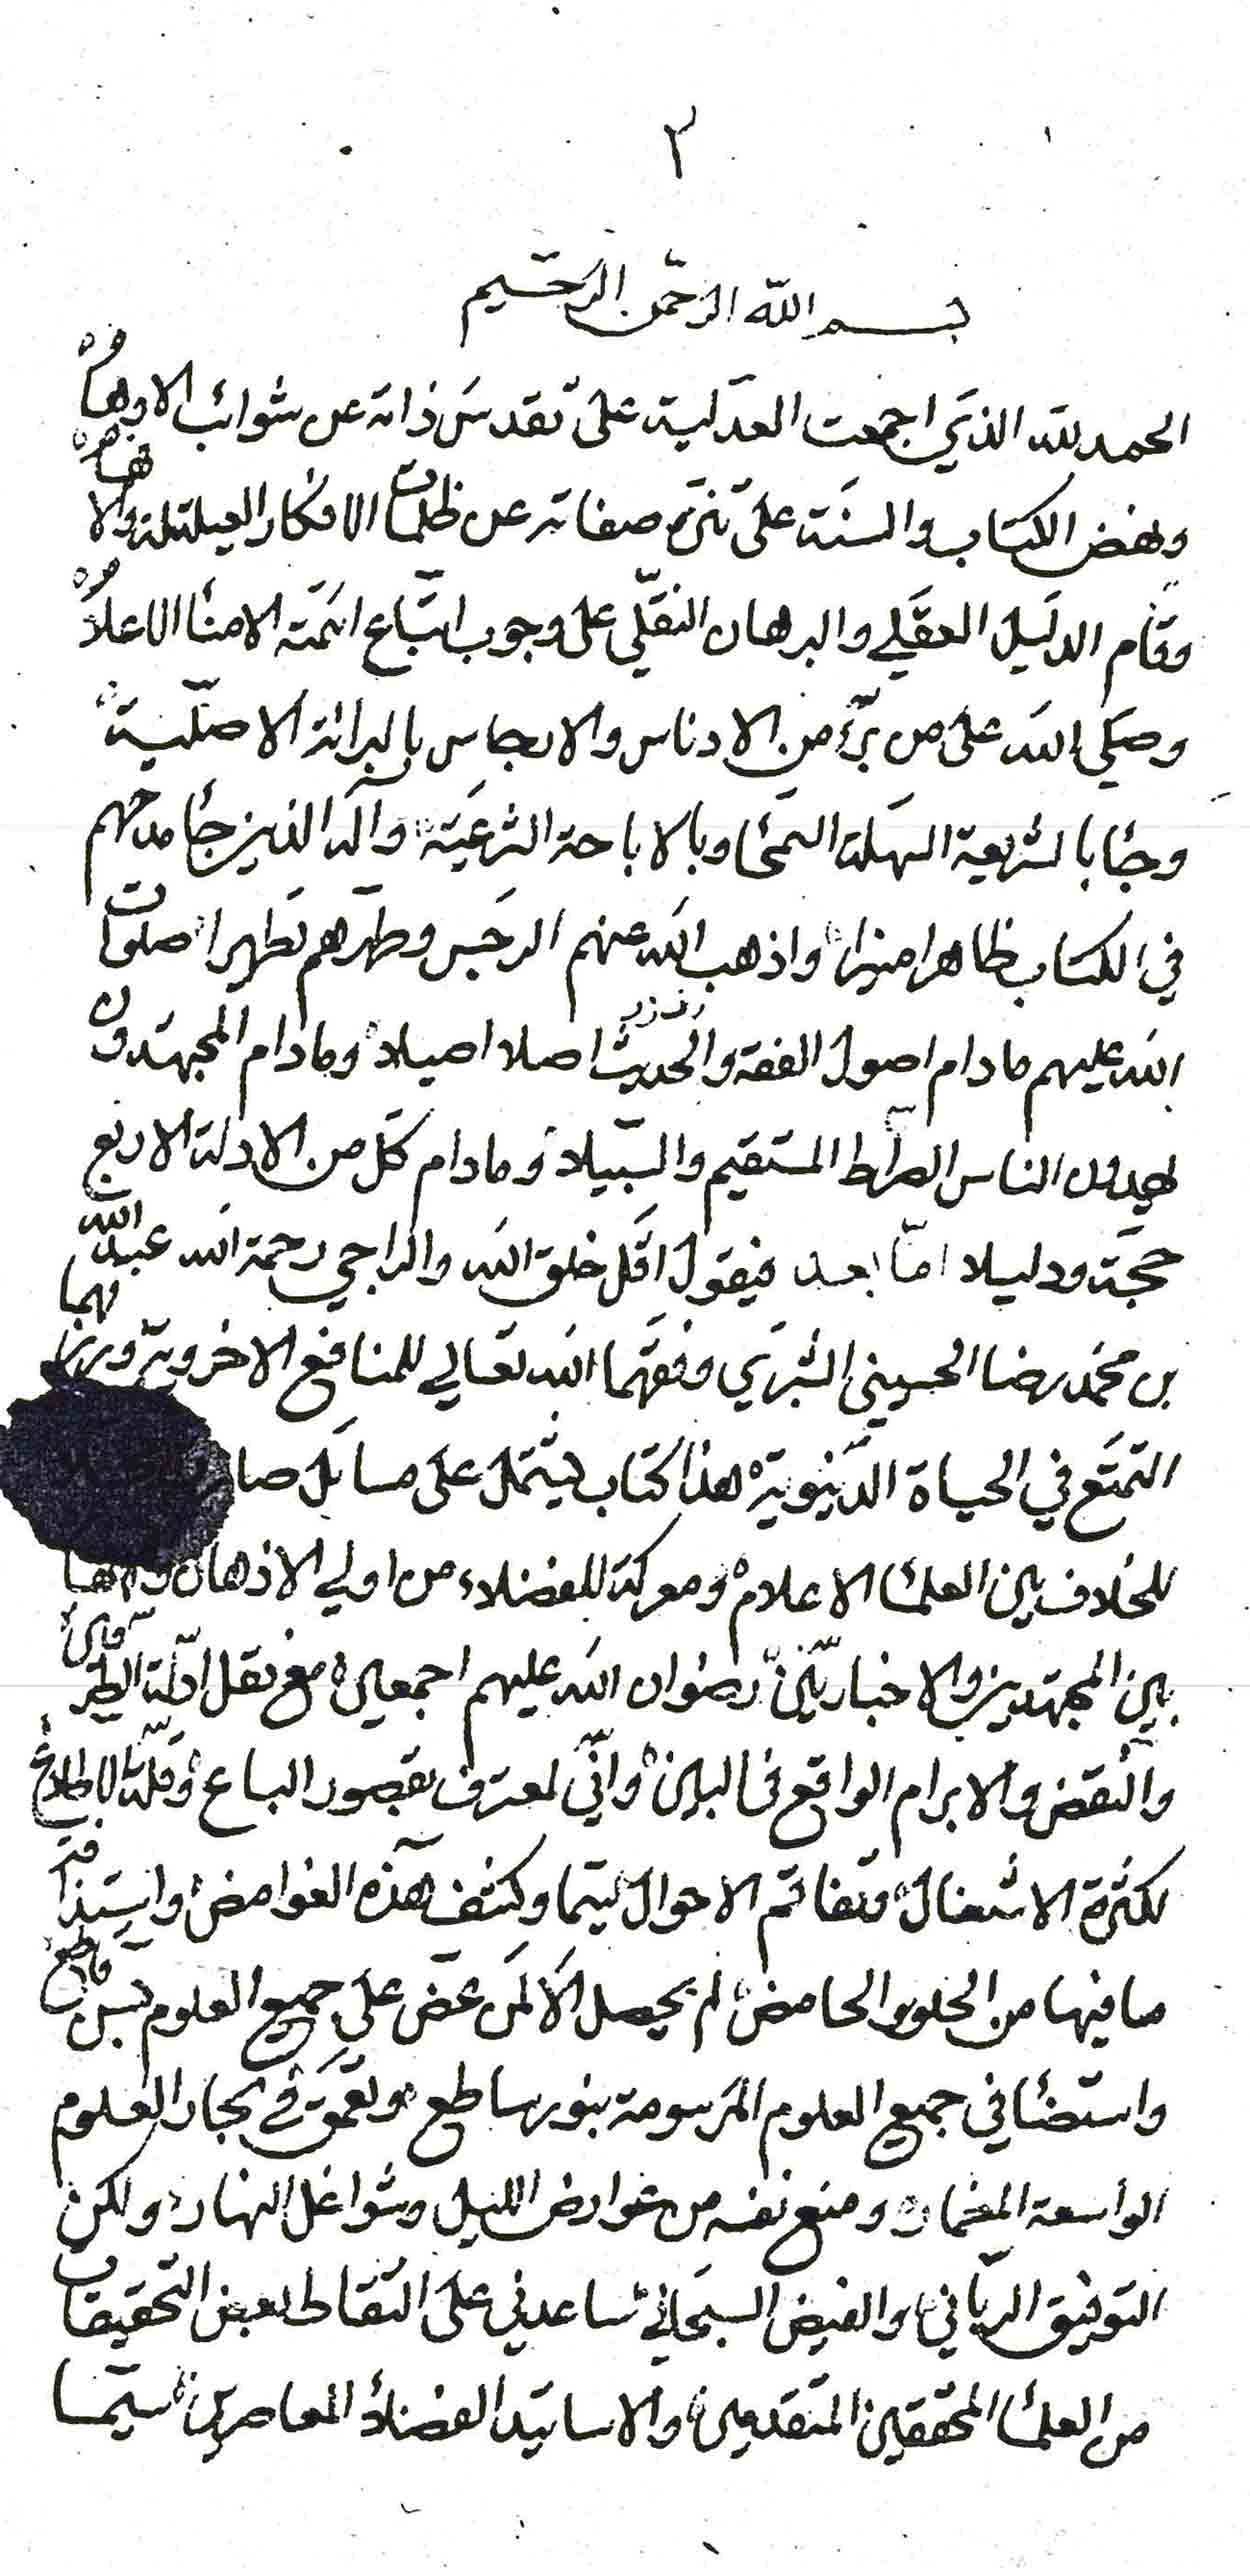 ٢
بسم الله الرحمن الرحيم
الحمد لله الذي اجمعت العدلية على تقدس ذاته عن شوائب الاوهام
ونهض الكتاب والسنة على تنزه صفاته عن ظلمات الافكار العليلة والافهام
وقام الدليل العقلي والبرهان النقلي على وجوب اتباع ائمته الامنأ الاعلام
وصلى الله على من برئ من الادناس والارجاس بالبرائة الاصلية
وجأ بالشريعة السهلة السمحأ وبالاباحة الشرعية وآله الذين جأ مدحهم
في الكتاب ظاهرا منيرا واذهب الله عنهم الرجس وطهرهم تطهيرا صلوات
الله عليهم مادام اصول الفقه والحديث اصلا اصيلا ومادام المجتهدون
يهدون الناس الصراط المستقيم والسبيلا ومادام كل من الادلة الاربع
حجة ودليلا اما بعد فيقول اقل خلق الله والراجي رحمة الله عبد الله
بن محمد رضا الحسيني الشبري وفقهما الله تعالي للمنافع الاخروية ورزقهما
التمتع في الحياة الدنيوية هذا كتاب يشتمل على مسائل
للخلاف بين العلمأ الاعلام ومعركة للفضلاء من اولي الاذهان والافهام
بين المجتهدين والاخباريين رضوان الله عليهم اجمعين مع نقل ادلة الطرفين
والنقض والابرام الواقع في البين واني لمعترف بقصور الباع وقلة الاطلاع
لكثرة الاشتغال وتفاقم الاحوال سيما وكشف هذه الغوامض واستذاقة
ما فيها من الحلو والحامض لم يحصل الا لمن عض علي جميع العلوم بضرس قاطع
واستضأ في جميع العلوم المرسومة بنور ساطع وتعمق في بحار العلوم
الواسعة الغمار ومنع نفسه من عوارض الليل وشواغل النهار ولكن
التوفيق الرباني والفيض السبحاني ساعدني على التقاط بعض التحقيقات
من العلمأ المحققين المتقدمين والاساتيد الفضلأ المعاصرين سيما